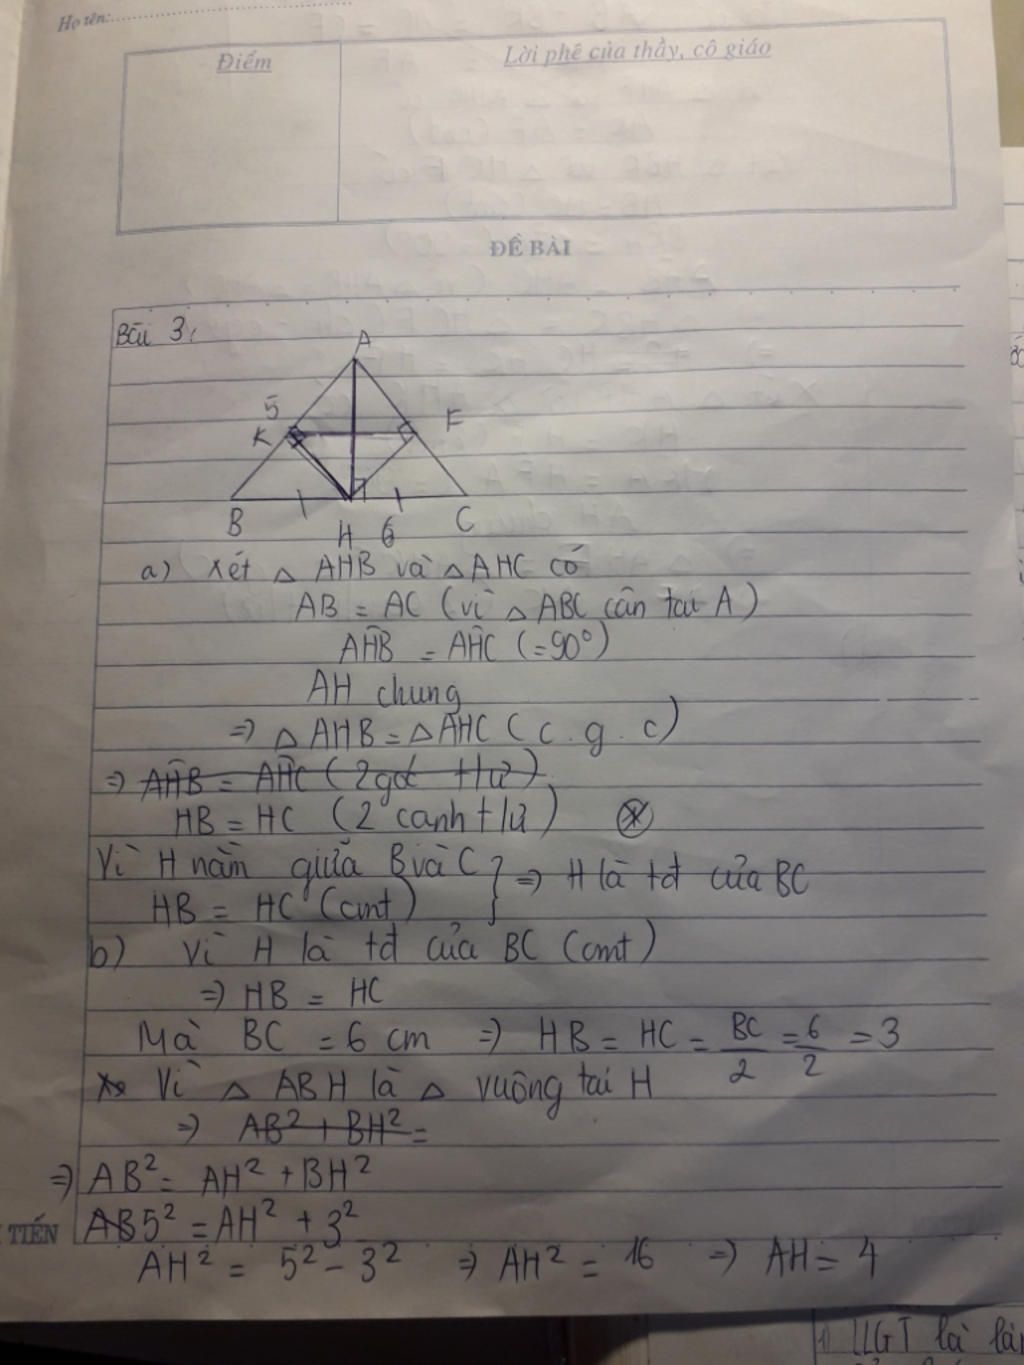 Họ tên:
Điểm
Lời phê của thầy, cô giáo
ĐỀ BÀI
Bài 3:
A
5
K
F
B
H
6
C
a) Xét △ AHB và △ AHC có
AB = AC (vì △ ABC cân tại A)
AĤB = AĤC (=90°)
AH chung
=> △ AHB = △ AHC (c.g.c)
=> AĤB = AĤC (2 góc tư)
HB = HC (2 cạnh tư) ⊛
Vì H nằm giữa B và C } => H là tđ của BC
HB = HC (cmt)
b) Vì H là tđ của BC (cmt)
=> HB = HC
Mà BC = 6 cm => HB = HC = BC/2 = 6/2 = 3
Vì △ ABH là △ vuông tại H
=> AB² + BH² =
=> AB² = AH² + BH²
AB 5² = AH² + 3²
TIẾN
AH² = 5² - 3² => AH² = 16 => AH = 4